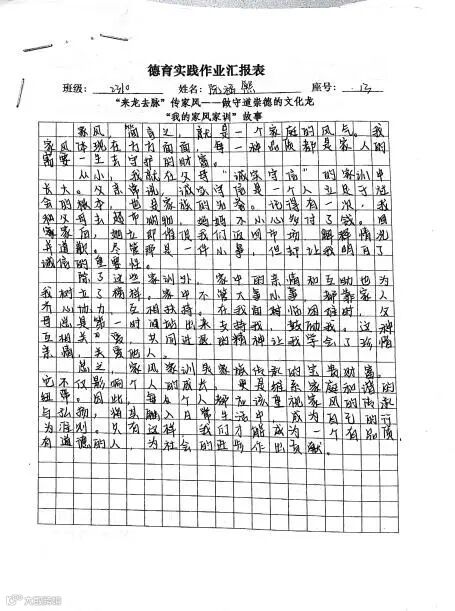 德育实践作业汇报表
班级： 2310 姓名： 阮 熙 座号： 13
“来龙去脉”传家风——做守道崇德的文化龙
“我的家风家训”故事
家风，简言之，就是一个家庭的风气。我
家风体现在方方面面，每一种品质都是家人的
需要一生去守护的财富。
从小，我就在父母“诚实守信”的家训中
长大。父亲常说，诚实守信是一个人立足于社
会的根本，也是家族的 。记得有一次，我
和父母去超市购物，妈妈不小心多付了钱。回
家后，她立即 我们返回市场，解释情况
并道歉。尽管那是一件小事，但却让我明白了
诚信的重要性。
除了这些家训外，家中的亲情和互助也为
我树立了榜样。家中不管大事小事，都靠家人
齐心协力，互相扶持。在我面临困难时，父
母总是第一时间站出来支持我，鼓励我。这种
互相关爱，共同进退的精神让我学会了珍惜
亲情，关爱他人。
总之，家风家训是家族传承的宝贵财富。
它不仅影响个人的成长，更是维系家庭和谐的
纽带。因此，每个人都应该重视家风的传承
与弘扬，将其融入日常生活中，成为自己的行
为准则。只有这样，我们才能成为一个有品质
有道德的人，为社会的进步作出贡献。